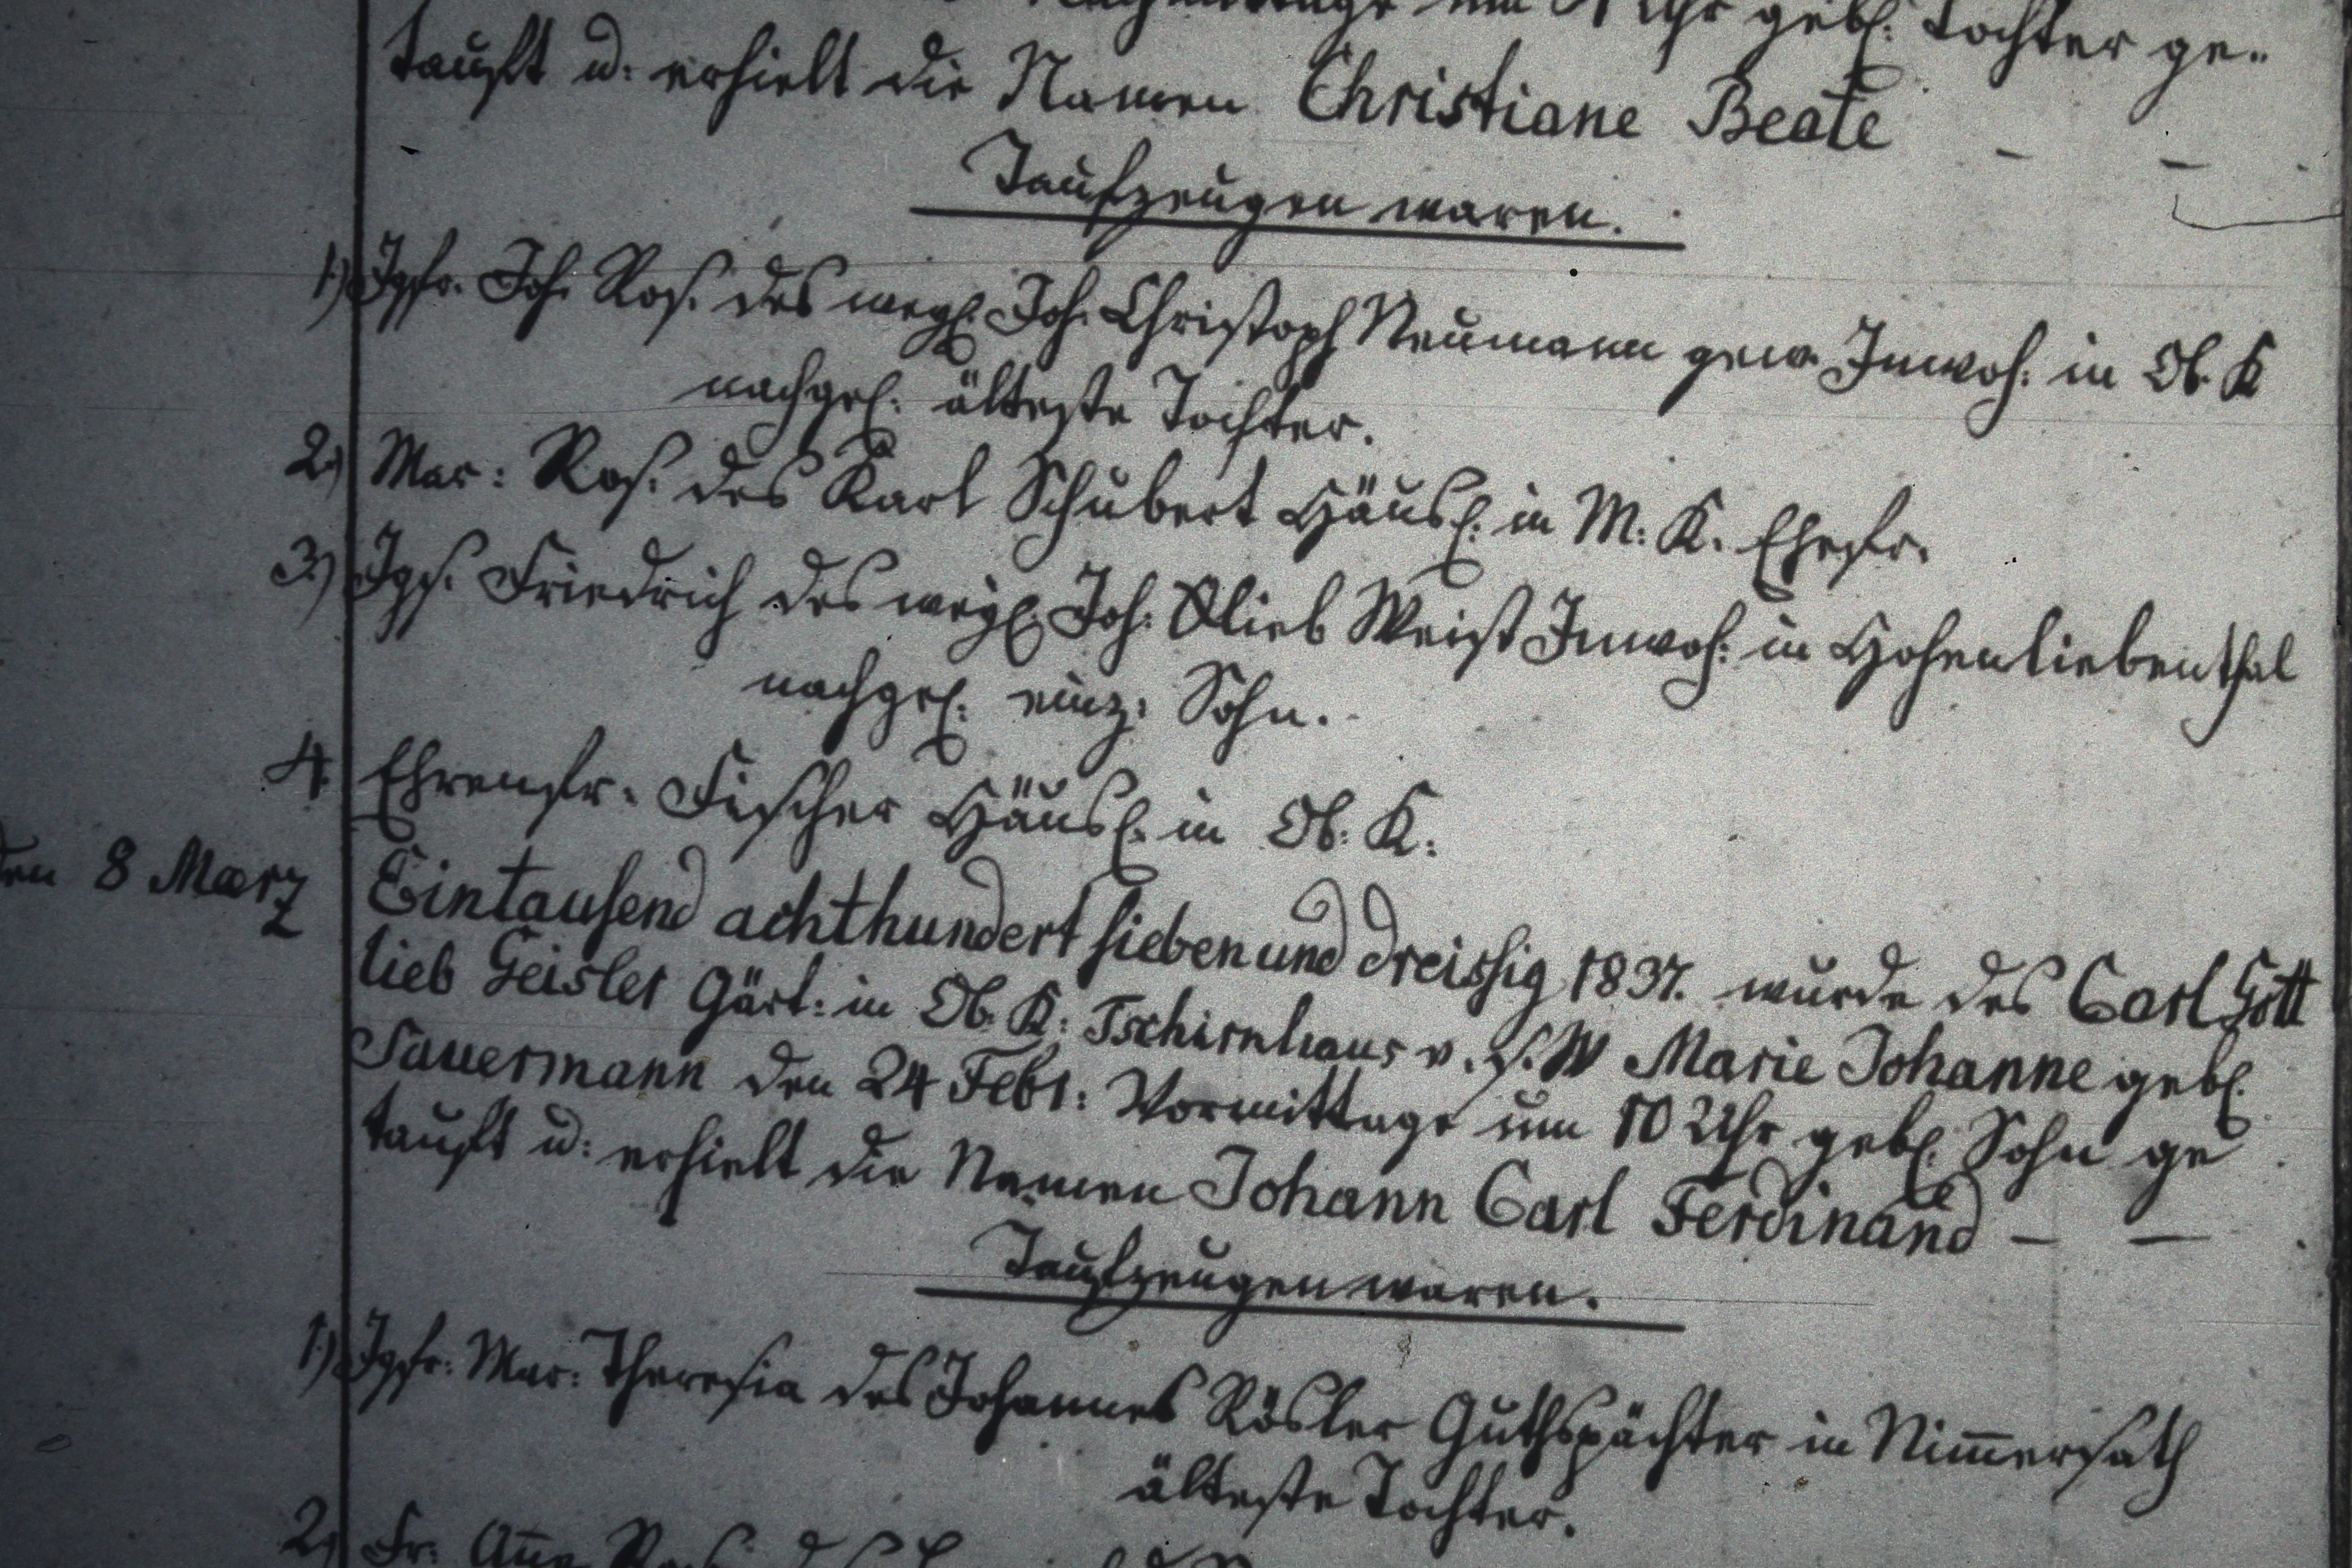 um 9 Uhr gebl. Tochter ge-
tauft u: erhielt die Namen Christiane Beate – –
Taufzeugen waren.
1.) Jgfr. Joh. Ros. des weyl. Joh. Christoph Neumann gew. Inwoh: in Ob. K
nachgel: älteste Tochter.
2.) Mar: Ros. des Karl Schubert Häusl. in M: K. Ehefr.
3.) Jgs. Friedrich des weyl. Joh: Glieb Weist Inwoh: in Hohenliebenthal
nachgel: einz: Sohn.
4. Ehrenfr. Fischer Häusl. in Ob: K:
den 8 Marz Eintausend achthundert sieben und dreissig 1837. wurde des Carl Gott
lieb Geisler Gärt: in Ob. K: Tschirnhaus v. s. W Marie Johanne gebl.
Sauermann den 24 Febr: Vormittage um 10 Uhr gebl. Sohn ge
tauft u: erhielt die Namen Johann Carl Ferdinand – –
Taufzeugen waren.
1.) Jgfr: Mar: Theresia des Johannes Rösler Guthspächter in Nim̅ersath
älteste Tochter.
2.) Fr: An̅a Ros.